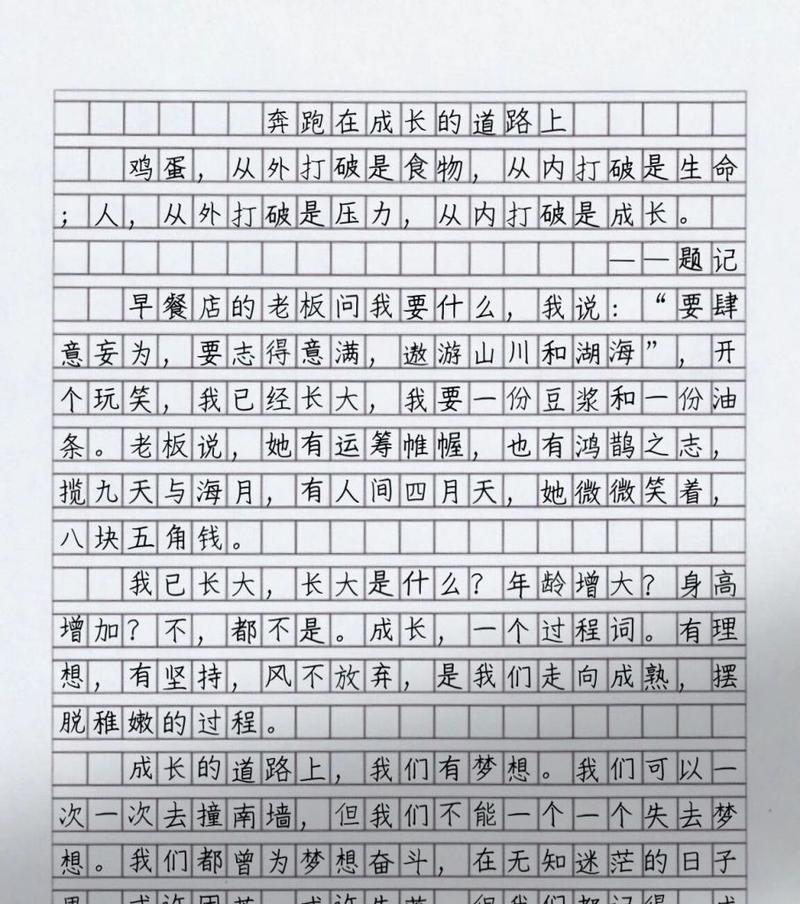 奔跑在成长的道路上
鸡蛋，从外打破是食物，从内打破是生命
；人，从外打破是压力，从内打破是成长。
——题记
早餐店的老板问我要什么，我说：“要肆
意妄为，要志得意满，遨游山川和湖海”，开
个玩笑，我已经长大，我要一份豆浆和一份油
条。老板说，她有运筹帷幄，也有鸿鹄之志，
揽九天与海月，有人间四月天，她微微笑着，
八块五角钱。
我已长大，长大是什么？年龄增大？身高
增加？不，都不是。成长，一个过程词。有理
想，有坚持，风不放弃，是我们走向成熟，摆
脱稚嫩的过程。
成长的道路上，我们有梦想。我们可以一
次一次去撞南墙，但我们不能一个一个失去梦
想。我们都曾为梦想奋斗，在无知迷茫的日子